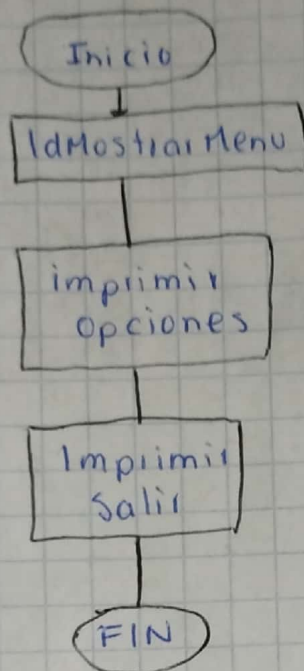 Inicio
IdMostrarMenu
imprimir
opciones
Imprimir
Salir
FIN